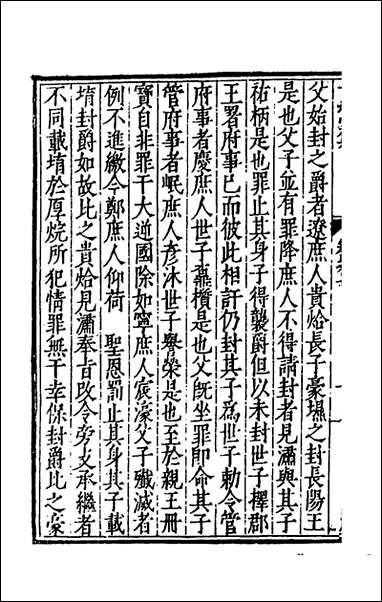 父始封之爵者遼庶人貴㷿長子豪壏之封長陽王
是也父子並有罪降庶人不得請封者見潚與其子
祐柄是也罪止其身子得襲爵但以未封世子擇郡
王署府事已而彼此相訐仍封其子為世子勅令管
府事者慶庶人世子鼒櫍是也父既坐罪即命其子
管府事者岷庶人彥汰世子譽榮是也至於親王冊
寶自非罪干大逆國除如寧庶人宸濠父子殲滅者
例不進繳今鄭庶人仰荷 聖恩罪止其身其子載
堉封爵如故比之貴㷿見潚奉旨改令旁支承繼者
不同載堉於厚烷所犯情罪無干幸保封爵比之豪